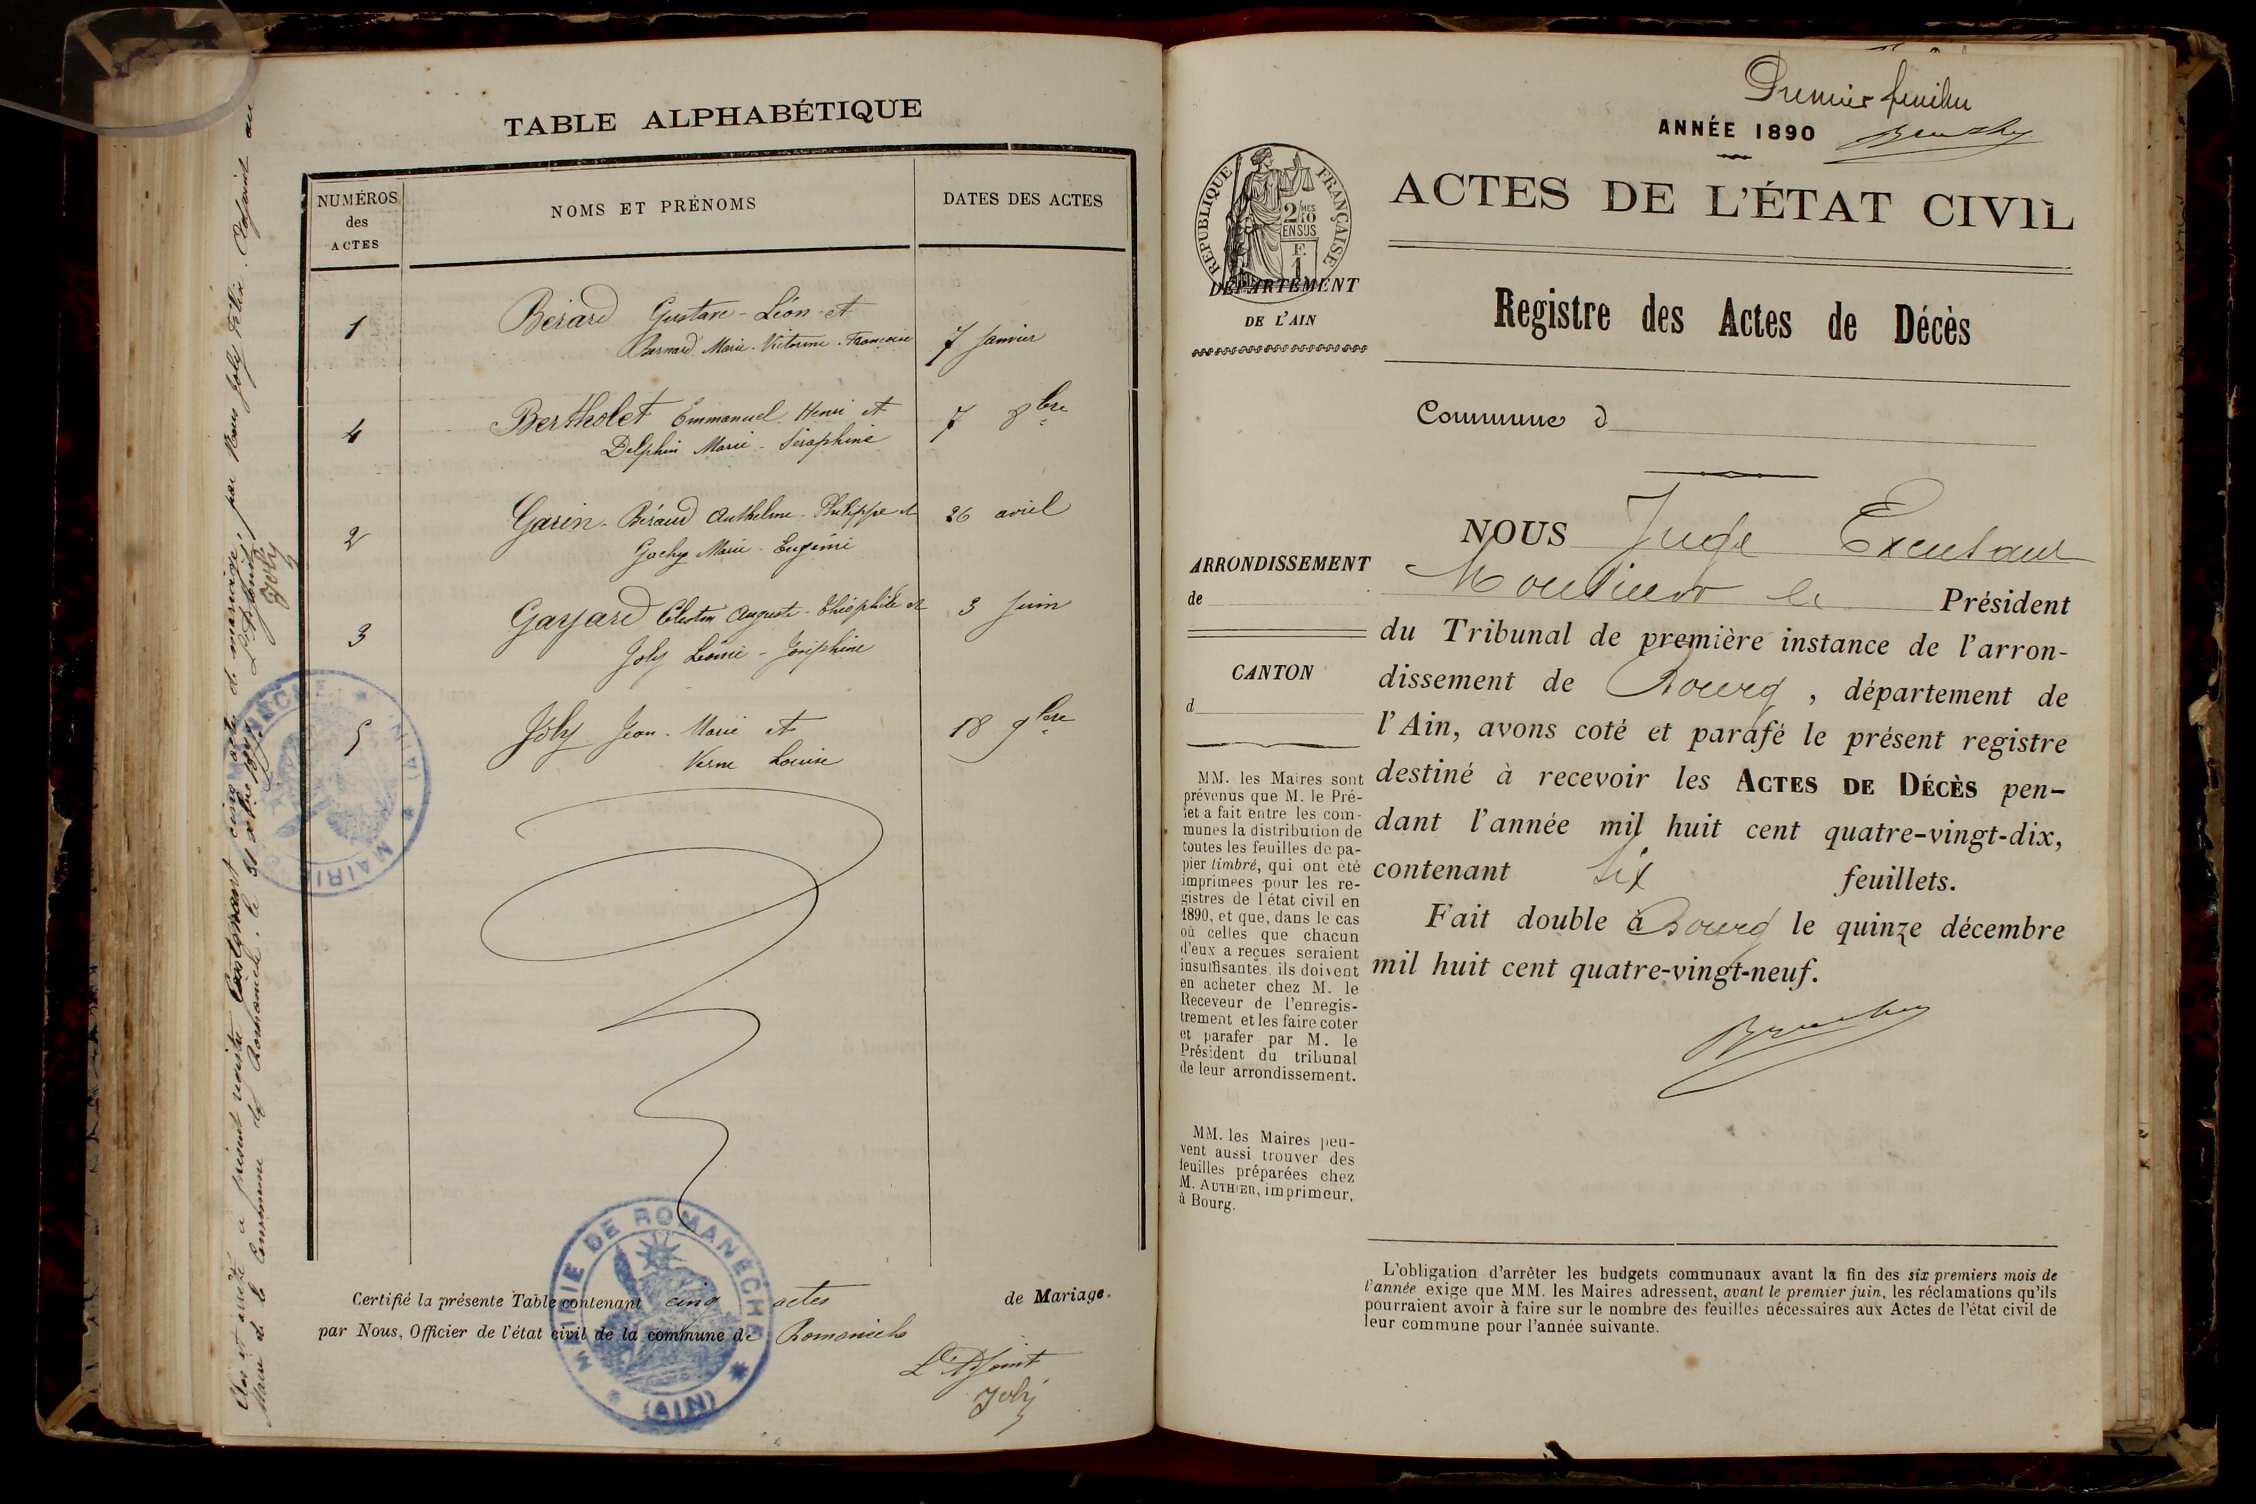 TABLE ALPHABÉTIQUE
NUMÉROS
des
ACTES
NOMS ET PRÉNOMS
DATES DES ACTES
1 Bérard Gustave - Léon et
Bernard Marie - Victorine - Françoise 7 Janvier
4 Bertholet Emmanuel Henri et 7 8bre
Delphin Marie - Séraphine
2 Garin - Béraud Anthelme - Philippe et 26 avril
Marie - Eugénie
3 Célestin Auguste - Théophile et 3 Juin
Joly Léonie - Joséphine
5 Joly Jean - Marie et 18 9bre
Verne Louise
Certifié la présente Table contenant cinq actes de Mariage.
par Nous, Officier de l'état civil de la commune de Romanèche
L'Adjoint
Joly
MAIRIE DE ROMANÈCHE
(AIN)
Clos et arrêté le présent registre contenant cinq actes de mariage, par Nous Joly Félix. Adjoint au
Maire de la Commune de Romanèche. le 31 Xbre 1890
L'Adjoint
Joly
Premier feuillet
ANNÉE 1890
RÉPUBLIQUE FRANÇAISE
2/10mes
EN SUS
F.
1
ACTES DE L'ÉTAT CIVIL
DÉPARTEMENT
DE L'AIN
Registre des Actes de Décès
Commune d
NOUS Juge Excusant
Monsieur le Président
du Tribunal de première instance de l'arron-
dissement de Bourg, département de
l'Ain, avons coté et parafé le présent registre
destiné à recevoir les ACTES DE DÉCÈS pen-
dant l'année mil huit cent quatre-vingt-dix,
contenant six feuillets.
Fait double à Bourg le quinze décembre
mil huit cent quatre-vingt-neuf.
ARRONDISSEMENT
de
CANTON
d
MM. les Maires sont
prévenus que M. le Pré-
fet a fait entre les com-
munes la distribution de
toutes les feuilles de pa-
pier timbré, qui ont été
imprimées pour les re-
gistres de l'état civil en
1890, et que, dans le cas
où celles que chacun
d'eux a reçues seraient
insuffisantes, ils doivent
en acheter chez M. le
Receveur de l'enregis-
trement et les faire coter
et parafer par M. le
Président du tribunal
de leur arrondissement.
MM. les Maires peu-
vent aussi trouver des
feuilles préparées chez
M. AUTHIER, imprimeur,
à Bourg.
L'obligation d'arrêter les budgets communaux avant la fin des six premiers mois de
l'année exige que MM. les Maires adressent, avant le premier juin, les réclamations qu'ils
pourraient avoir à faire sur le nombre des feuilles nécessaires aux Actes de l'état civil de
leur commune pour l'année suivante.